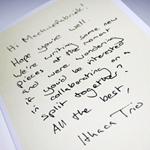 Hi
Hope you're well.
We're writing some new
pieces at the moment
and were wondering
if you'd be interested
in collaborating on a
split together?
All the best,
Ithaca Trio